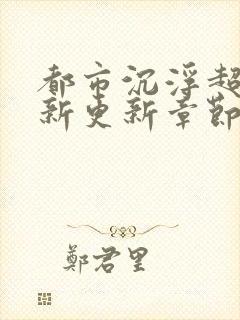 都市沉浮超
新更新章節
鄭君里